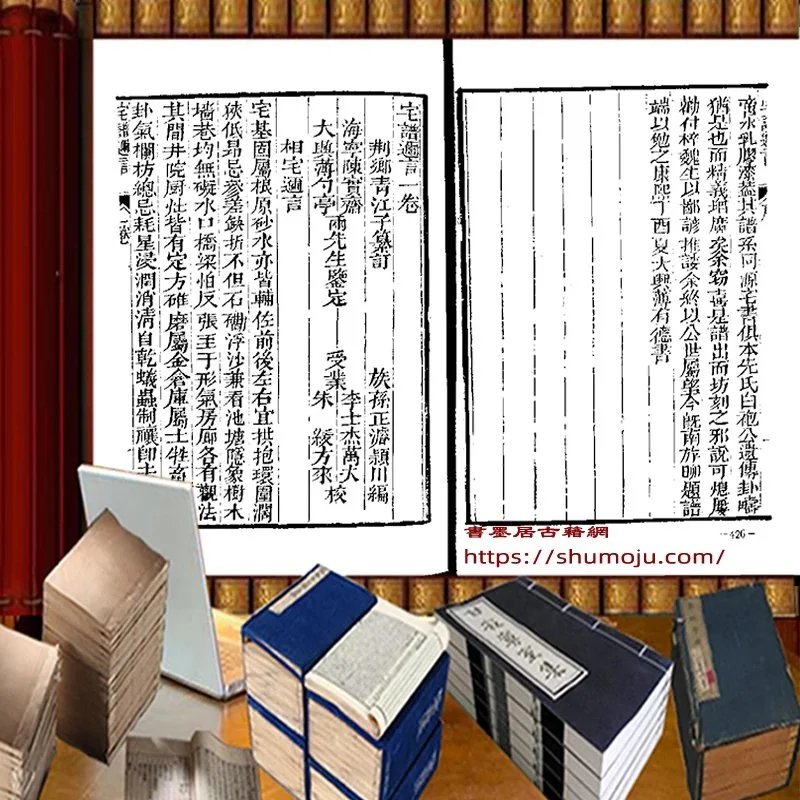 啇水乳膠漆葢其譜系同源宅書俱本先氏白袍公遺傳卦疇
猶是也而精義增廣矣余窃喜是譜出而坊刻之邪說可熄屢
勸付梓魏生以鄙諺推諉余終以公世屬望今旣南旋聊題譜
端以勉之康熙丁酉夏大興薄有德書
—426—
宅譜邇言一卷
荆鄉青江子纂訂 族孫正瀞頴川編
海寧陳實齋
大興薄勺亭
兩先生鑒定 受業
李士杰萬大
朱綬方來
校
相宅邇言
宅基固屬根原砂水亦皆輔佐前後左右宜拱抱環圍濶
狹低昂忌參差缺折不但石磡浮沙兼看池塘隱象樹木
墻巷均無礙水口橋梁怕反張主于形氣房廊各有觀法
其間井院厨灶皆有定方碓磨屬金倉庫屬土牲
卦氣欄枋總忌耗星浸潤消清自乾蟻蟲制禳卽
宅譜邇言
書墨居古籍網
https://shumoju.com/